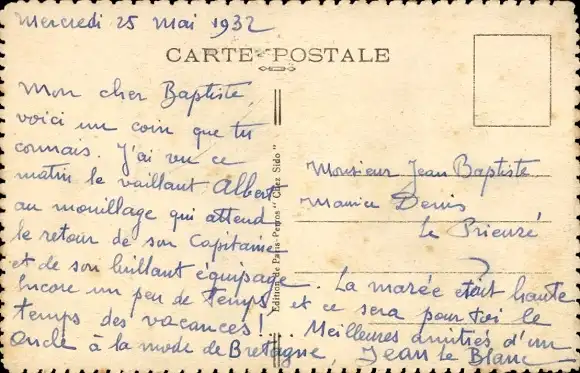 Mercredi 25 mai 1932
CARTE POSTALE
Mon cher Baptiste
voici un coin que tu
connais. J'ai vu ce
matin le vaillant Albert
au mouillage qui attend
le retour de son Capitaine
et de son brillant équipage.
Encore un peu de temps, et ce sera pour toi le
temps des vacances!... Meilleures amitiés d'un
oncle à la mode de Bretagne, Jean le Blanc
La marée était haute
Edition de Paris-Perros "Chez Sido"
Monsieur Jean Baptiste
Maurice Denis
Le Prieuré